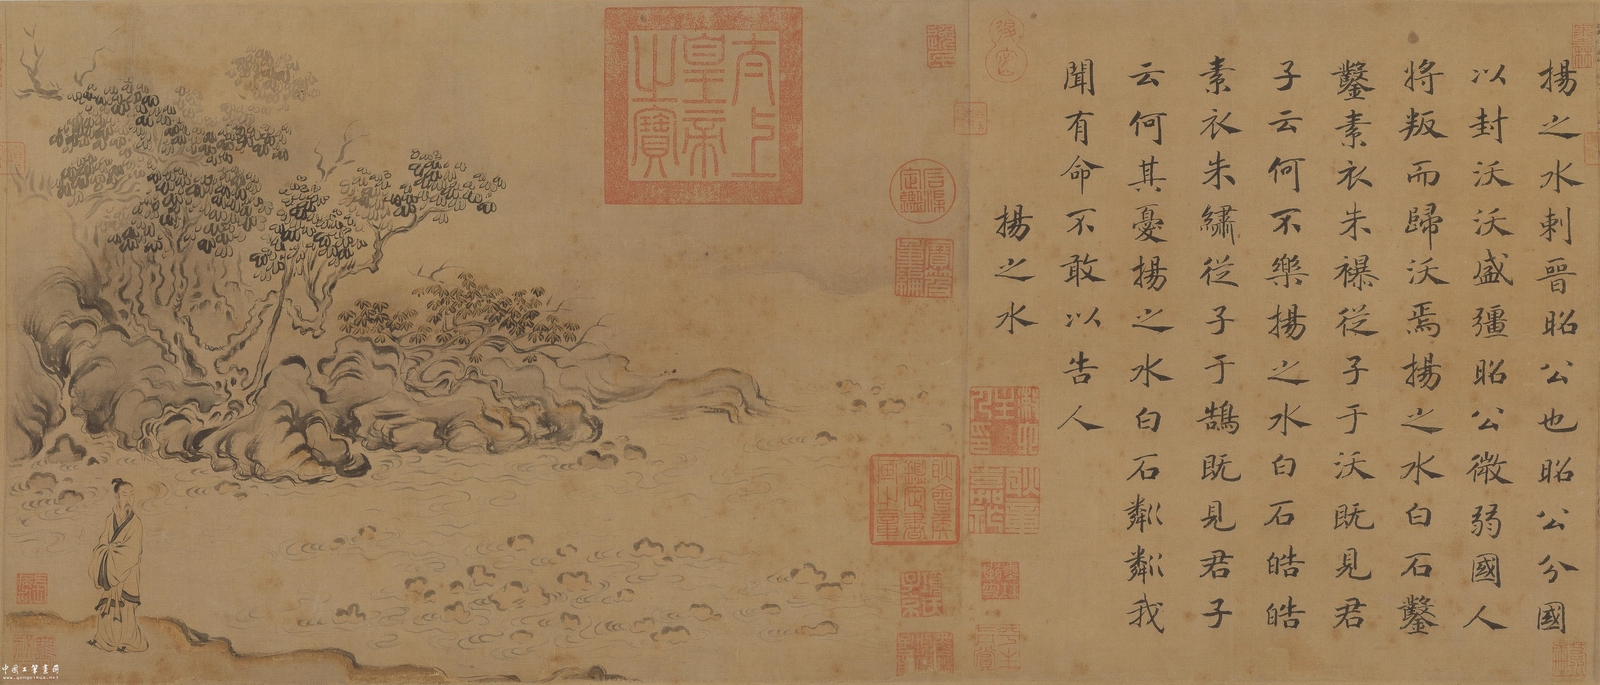 揚之水刺晉昭公也昭公分國
以封沃沃盛彊昭公微弱國人
將叛而歸沃焉揚之水白石鑿
鑿素衣朱襮從子于沃既見君
子云何不樂揚之水白石皓皓
素衣朱繡從子于鵠既見君子
云何其憂揚之水白石粼粼我
聞有命不敢以告人
揚之水
太上
皇帝
之寶
中国工笔画网
www.gongbihua.net